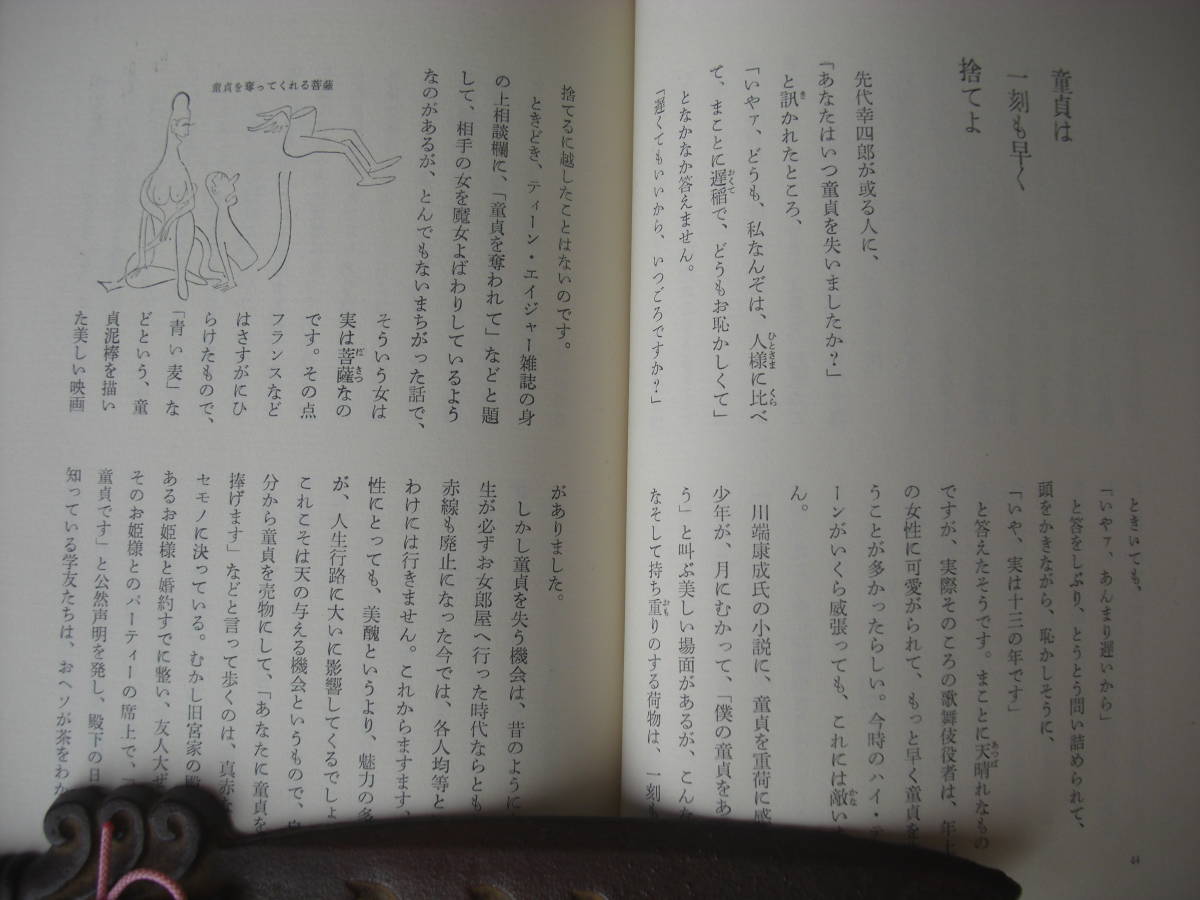 童貞は
一刻も早く
捨てよ
先代幸四郎が或る人に、
「あなたはいつ童貞を失いましたか？」
と訊かれたところ、
「いやァ、どうも、私なんぞは、人様に比べ
て、まことに遅稲で、どうもお恥かしくて」
となかなか答えません。
「遅くてもいいから、いつごろですか？」
ときいても、
「いやァ、あんまり遅いから」
と答をしぶり、とうとう問い詰められて、
頭をかきながら、恥かしそうに、
「いや、実は十三の年です」
と答えたそうです。まことに天晴れなもの
ですが、実際そのころの歌舞伎役者は、年上
の女性に可愛がられて、もっと早く童貞を
うことが多かったらしい。今時のハイ・テ
ーンがいくら威張っても、これには敵い
ん。
川端康成氏の小説に、童貞を重荷に感
少年が、月にむかって、「僕の童貞をあ
う」と叫ぶ美しい場面があるが、こんな
なそして持ち重りのする荷物は、一刻も
44
捨てるに越したことはないのです。
ときどき、ティーン・エイジャー雑誌の身
の上相談欄に、「童貞を奪われて」などと題
して、相手の女を魔女よばわりしているよう
なのがあるが、とんでもないまちがった話で、
そういう女は
実は菩薩なの
です。その点
フランスなど
はさすがにひ
らけたもので、
「青い麦」な
どという、童
貞泥棒を描い
た美しい映画
童貞を奪ってくれる菩薩
がありました。
しかし童貞を失う機会は、昔のように
生が必ずお女郎屋へ行った時代ならとも
赤線も廃止になった今では、各人均等と
わけには行きません。これからますます、
性にとっても、美醜というより、魅力の多
が、人生行路に大いに影響してくるでしょ
これこそは天の与える機会というもので、自
分から童貞を売物にして、「あなたに童貞を
捧げます」などと言って歩くのは、真赤な
セモノに決っている。むかし旧宮家の殿
あるお姫様と婚約すでに整い、友人大ぜ
そのお姫様とのパーティーの席上で、「
童貞です」と公然声明を発し、殿下の日
知っている学友たちは、おヘソが茶をわか